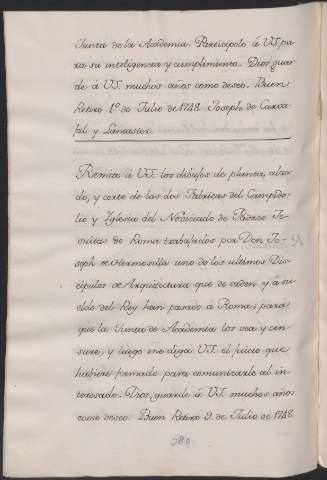 Junta de la Academia. Participolo á VS. pa-
ra su inteligencia y cumplimiento. Dios guar-
de á VS. muchos años como deseo. Buen
Retiro 1º de Julio de 1748. Joseph de Carva-
jal y Lancaster.
Remito á VS. los dibujos de planta, alza-
do, y corte de las dos Fabricas del Campido-
lio y Yglesia del Noviciado de Padres Je-
suitas de Roma trabajados por Don Jo-
seph de Hermosilla uno de los ultimos Dis-
cipulos de Arquitectura que de orden y á su-
eldo del Rey han pasado á Roma; para
que la Junta de Academia los vea y cen-
sure, y luego me diga VS. el juicio que
hubiere formado para comunicarle al in-
teresado. Dios guarde á VS. muchos años
como deseo. Buen Retiro 9. de Julio de 1748.